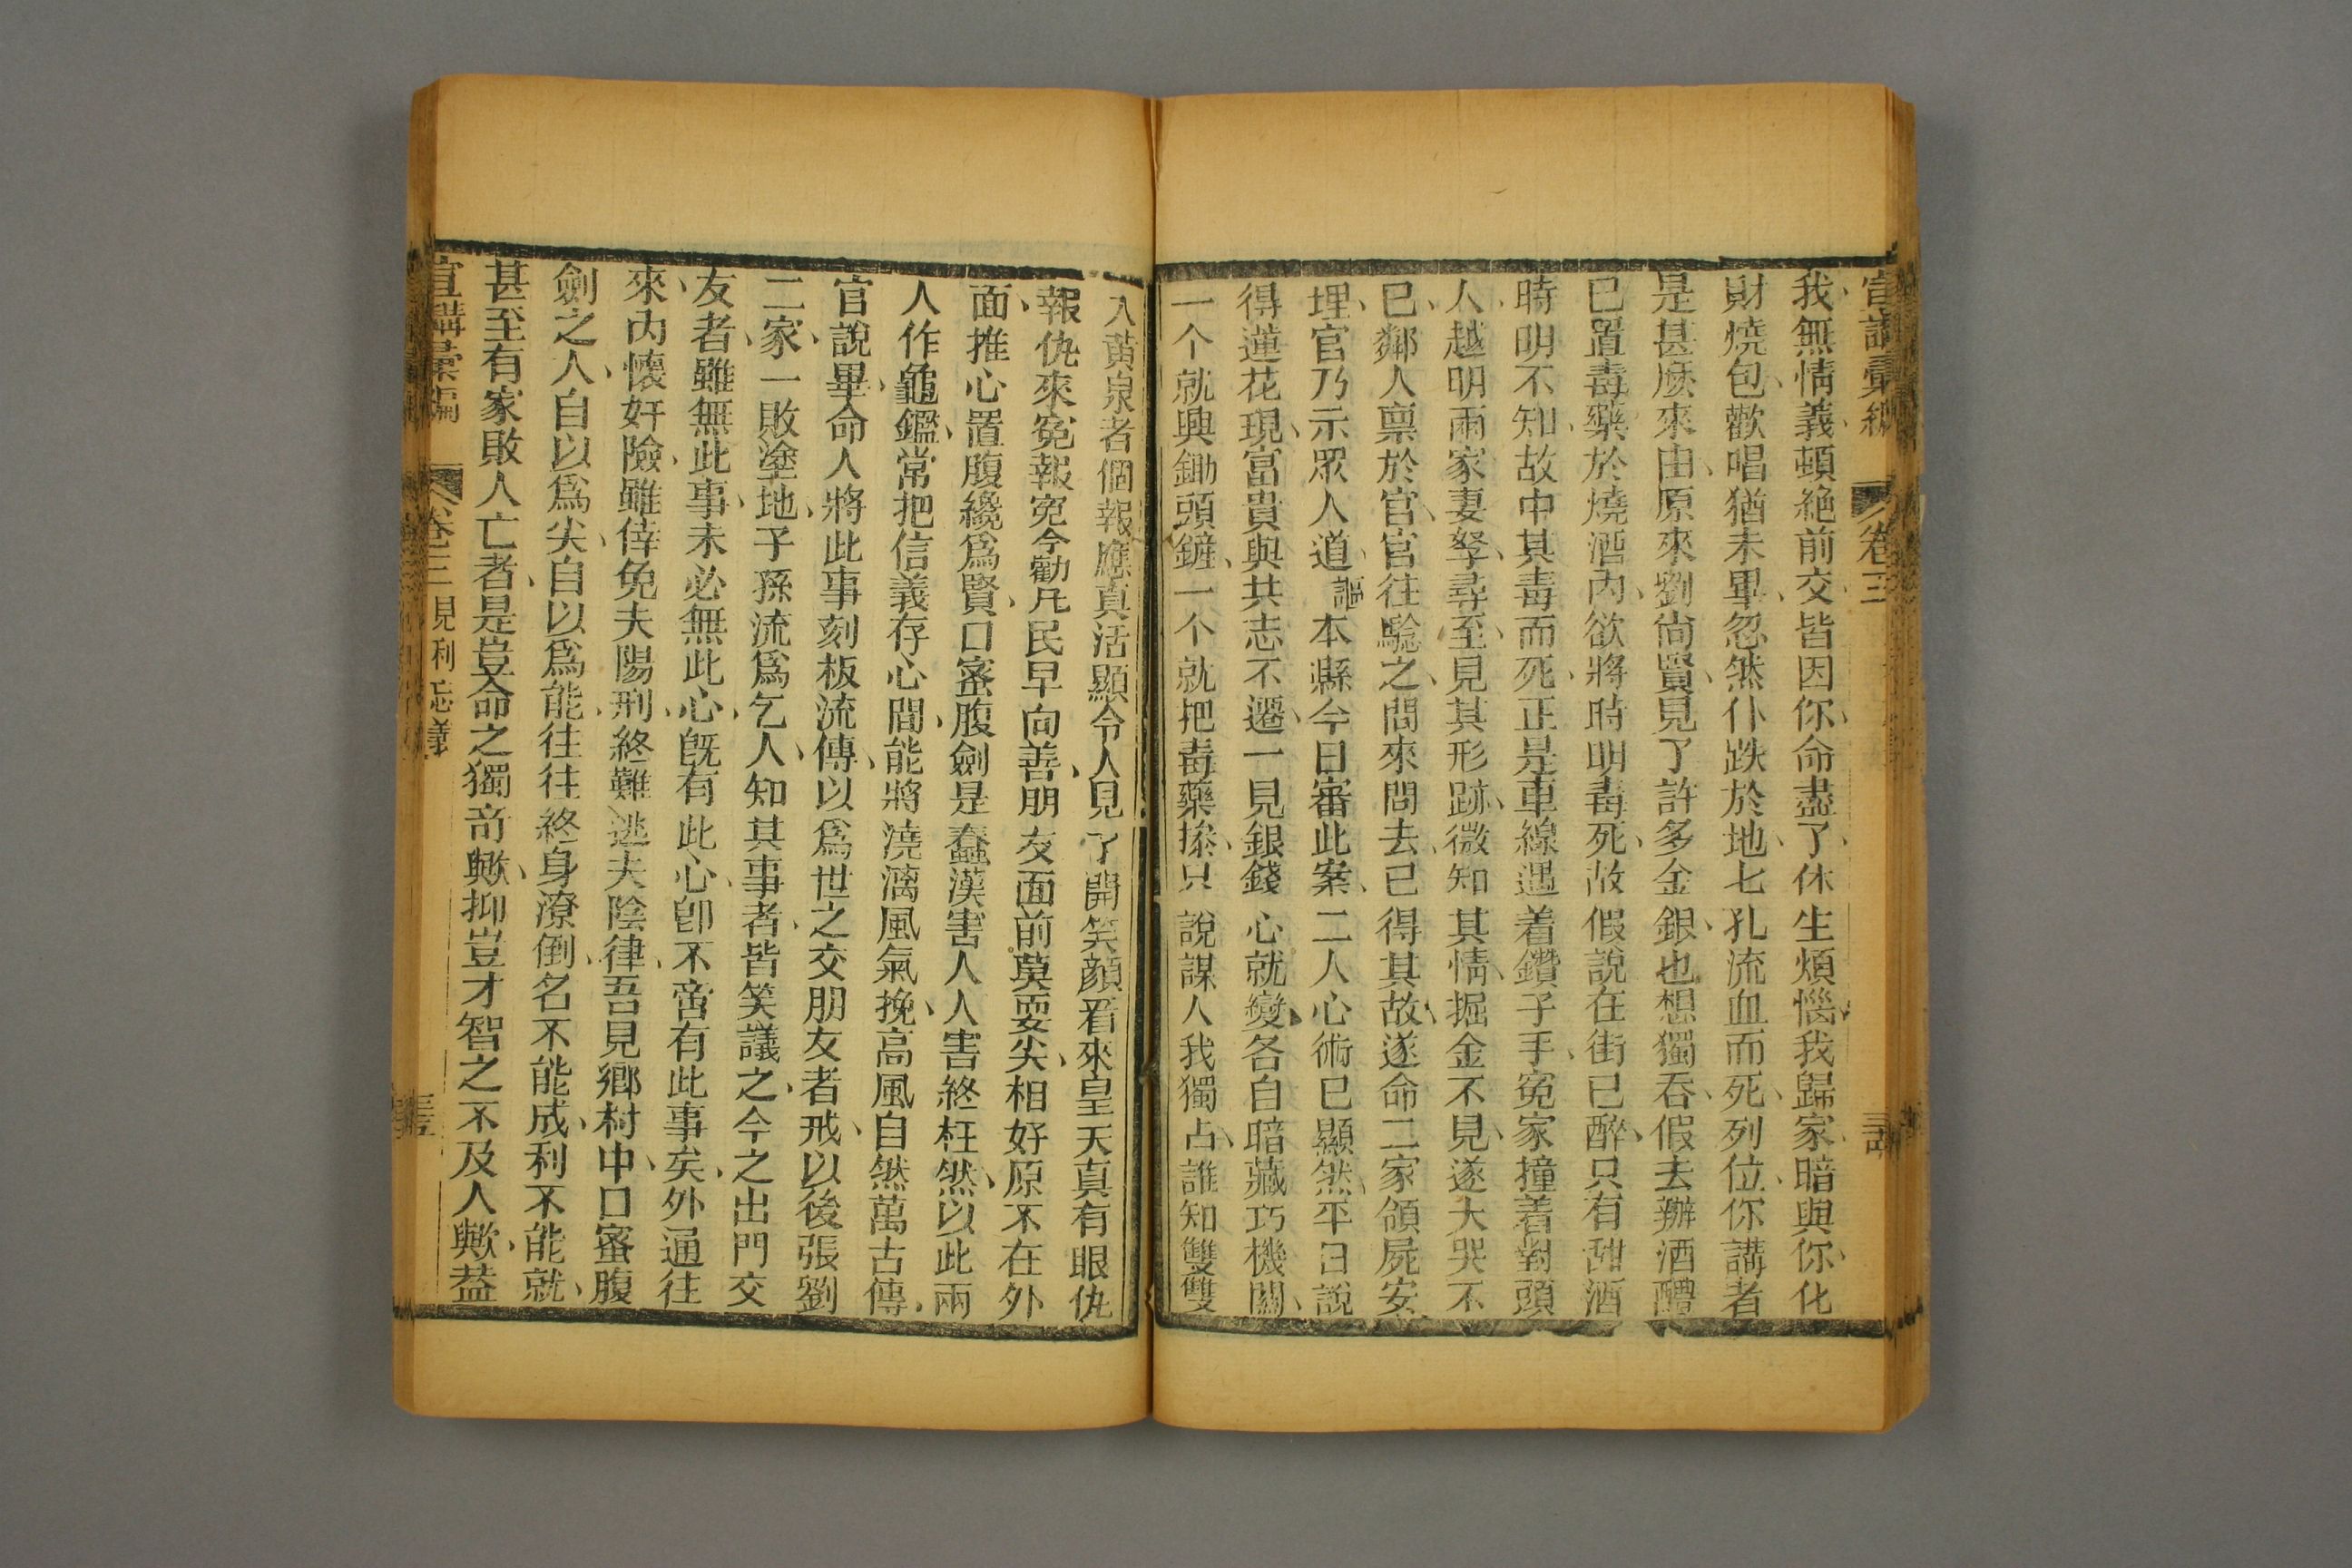 宣講彙編 卷三
我無情義頓絕前交皆因你命盡了休生煩惱我歸家暗與你化
財燒包歡唱猶未畢忽然仆跌於地七孔流血而死列位你講者
是甚麽來由原來劉尚賢見了許多金銀也想獨吞假去辦酒醴
已置毒藥於燒酒內欲將時明毒死故假說在街已醉只有甜酒
時明不知故中其毒而死正是車線遇着鑽子手寃家撞着對頭
人越明兩家妻孥尋至見其形跡微知其情掘金不見遂大哭不
已鄰人禀於官官往驗之問來問去已得其故遂命二家領屍安
埋官乃示眾人道 謳 本縣今日審此案二人心術已顯然平日說
得蓮花現富貴與共志不遷一見銀錢心就變各自暗藏巧機關
一个就興鋤頭鏟一个就把毒藥摻只說謀人我獨占誰知雙雙
入黃泉者個報應真活顯令人見了開笑顏看來皇天真有眼仇
報仇來寃報寃今勸凡民早向善朋友面前莫耍尖相好原不在外
面推心置腹纔爲賢口蜜腹劍是蠢漢害人人害終枉然以此兩
人作龜鑑常把信義存心間能將澆漓風氣挽高風自然萬古傳
官說畢命人將此事刻板流傳以爲世之交朋友者戒以後張劉
二家一敗塗地子孫流爲乞人知其事者皆笑議之今之出門交
友者雖無此事未必無此心旣有此心卽不啻有此事矣外通往
來內懷奸險雖倖免夫陽刑終難逃夫陰律吾見鄉村中口蜜腹
劍之人自以爲尖自以爲能往往終身潦倒名不能成利不能就
甚至有家敗人亡者是豈命之獨奇歟抑豈才智之不及人歟葢
宣講彙編 卷三 見利忘義